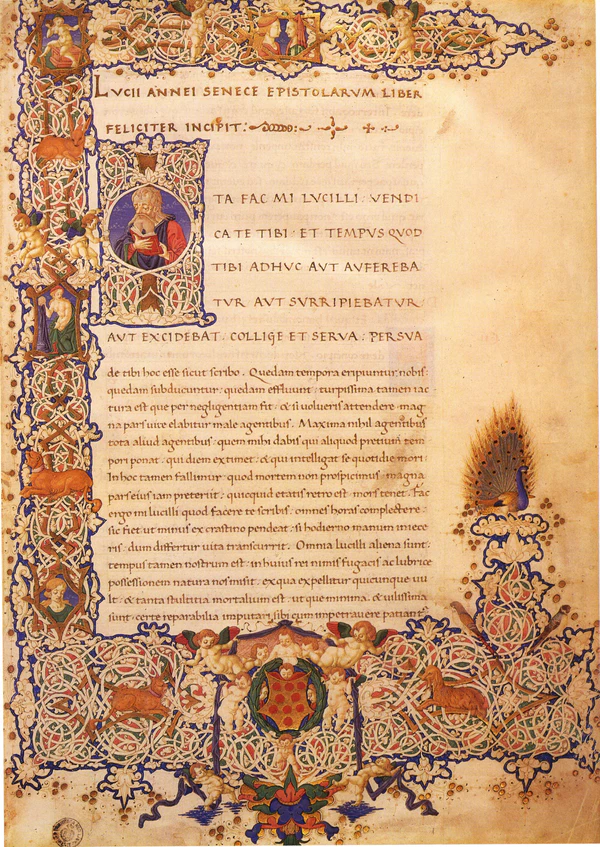 LVCII ANNEI SENECE EPISTOLARVM LIBER
FELICITER INCIPIT:
TA FAC MI LVCILLI: VENDI
CA TE TIBI: ET TEMPVS QVOD
TIBI ADHVC AVT AVFEREBA
TVR AVT SVRRIPIEBATVR
AVT EXCIDEBAT. COLLIGE ET SERVA: PERSVA
de tibi hoc esse sicut scribo. Quedam tempora eripiuntur nobis:
quedam subducuntur: quedam effluunt. turpissima tamen iac
tura est que per negligentiam fit. & si volueris attendere. mag
na pars vite elabitur male agentibus. Maxima nihil agentibus
tota aliud agentibus. quem mihi dabis qui aliquod pretium tem
pori ponat. qui diem extimet. & qui intelligat se quotidie mori.
In hoc tamen fallimur. quod mortem non prospicimus. magna
pars eius iam preterijt. quicquid etatis retro est. mors tenet. Fac
ergo mi lucilli quod facere te scribis. omnes horas complectere.
sic fiet ut minus ex crastino pendeat. si hodierno manum iniece
ris. dum differtur vita transcurrit. Omnia lucilli aliena sunt.
tempus tamen nostrum est. in huius rei nimis fugacis ac lubrice
possessionem natura nos misit. ex qua expellitur quicunque uu
lt. & tanta stultitia mortalium est. ut que minima. & uilissima
sunt. certe reparabilia imputari sibi cum impetrauere patiant